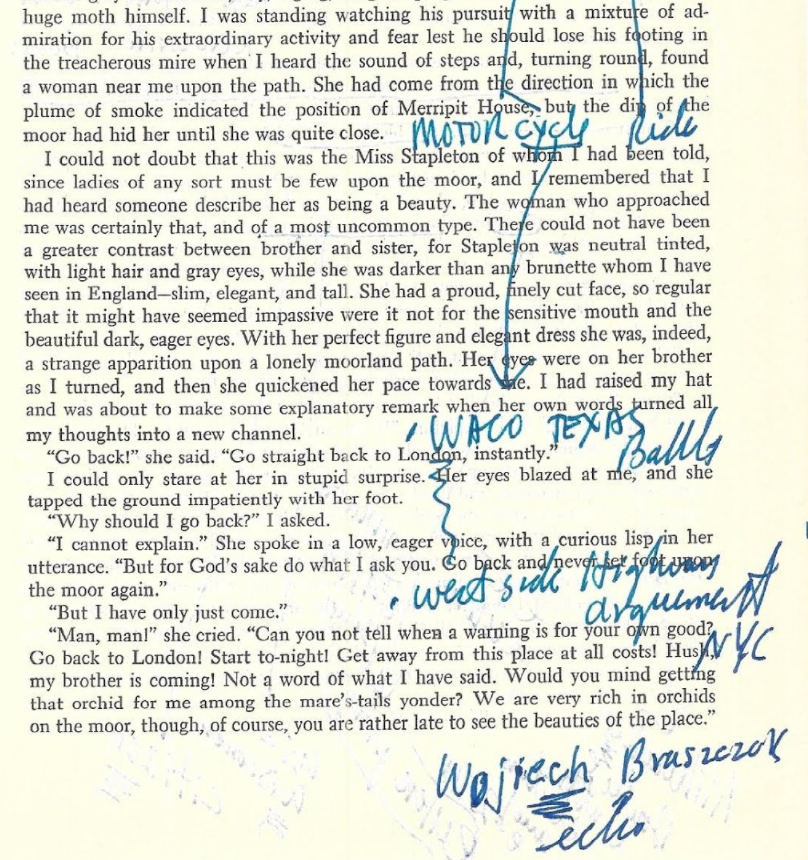 huge moth himself. I was standing watching his pursuit with a mixture of ad-
miration for his extraordinary activity and fear lest he should lose his footing in
the treacherous mire when I heard the sound of steps and, turning round, found
a woman near me upon the path. She had come from the direction in which the
plume of smoke indicated the position of Merripit House, but the dip of the
moor had hid her until she was quite close.
MOTORcycle Ride
I could not doubt that this was the Miss Stapleton of whom I had been told,
since ladies of any sort must be few upon the moor, and I remembered that I
had heard someone describe her as being a beauty. The woman who approached
me was certainly that, and of a most uncommon type. There could not have been
a greater contrast between brother and sister, for Stapleton was neutral tinted,
with light hair and gray eyes, while she was darker than any brunette whom I have
seen in England—slim, elegant, and tall. She had a proud, finely cut face, so regular
that it might have seemed impassive were it not for the sensitive mouth and the
beautiful dark, eager eyes. With her perfect figure and elegant dress she was, indeed,
a strange apparition upon a lonely moorland path. Her eyes were on her brother
as I turned, and then she quickened her pace towards me. I had raised my hat
and was about to make some explanatory remark when her own words turned all
my thoughts into a new channel.
WACO TEXAS
"Go back!" she said. "Go straight back to London, instantly."
I could only stare at her in stupid surprise. Her eyes blazed at me, and she
tapped the ground impatiently with her foot.
"Why should I go back?" I asked.
"I cannot explain." She spoke in a low, eager voice, with a curious lisp in her
utterance. "But for God's sake do what I ask you. Go back and never set foot upon
the moor again."
west side Highway
arguement
NYC
"But I have only just come."
"Man, man!" she cried. "Can you not tell when a warning is for your own good?
Go back to London! Start to-night! Get away from this place at all costs! Hush,
my brother is coming! Not a word of what I have said. Would you mind getting
that orchid for me among the mare's-tails yonder? We are very rich in orchids
on the moor, though, of course, you are rather late to see the beauties of the place."
Wojiech Braszczok
echo